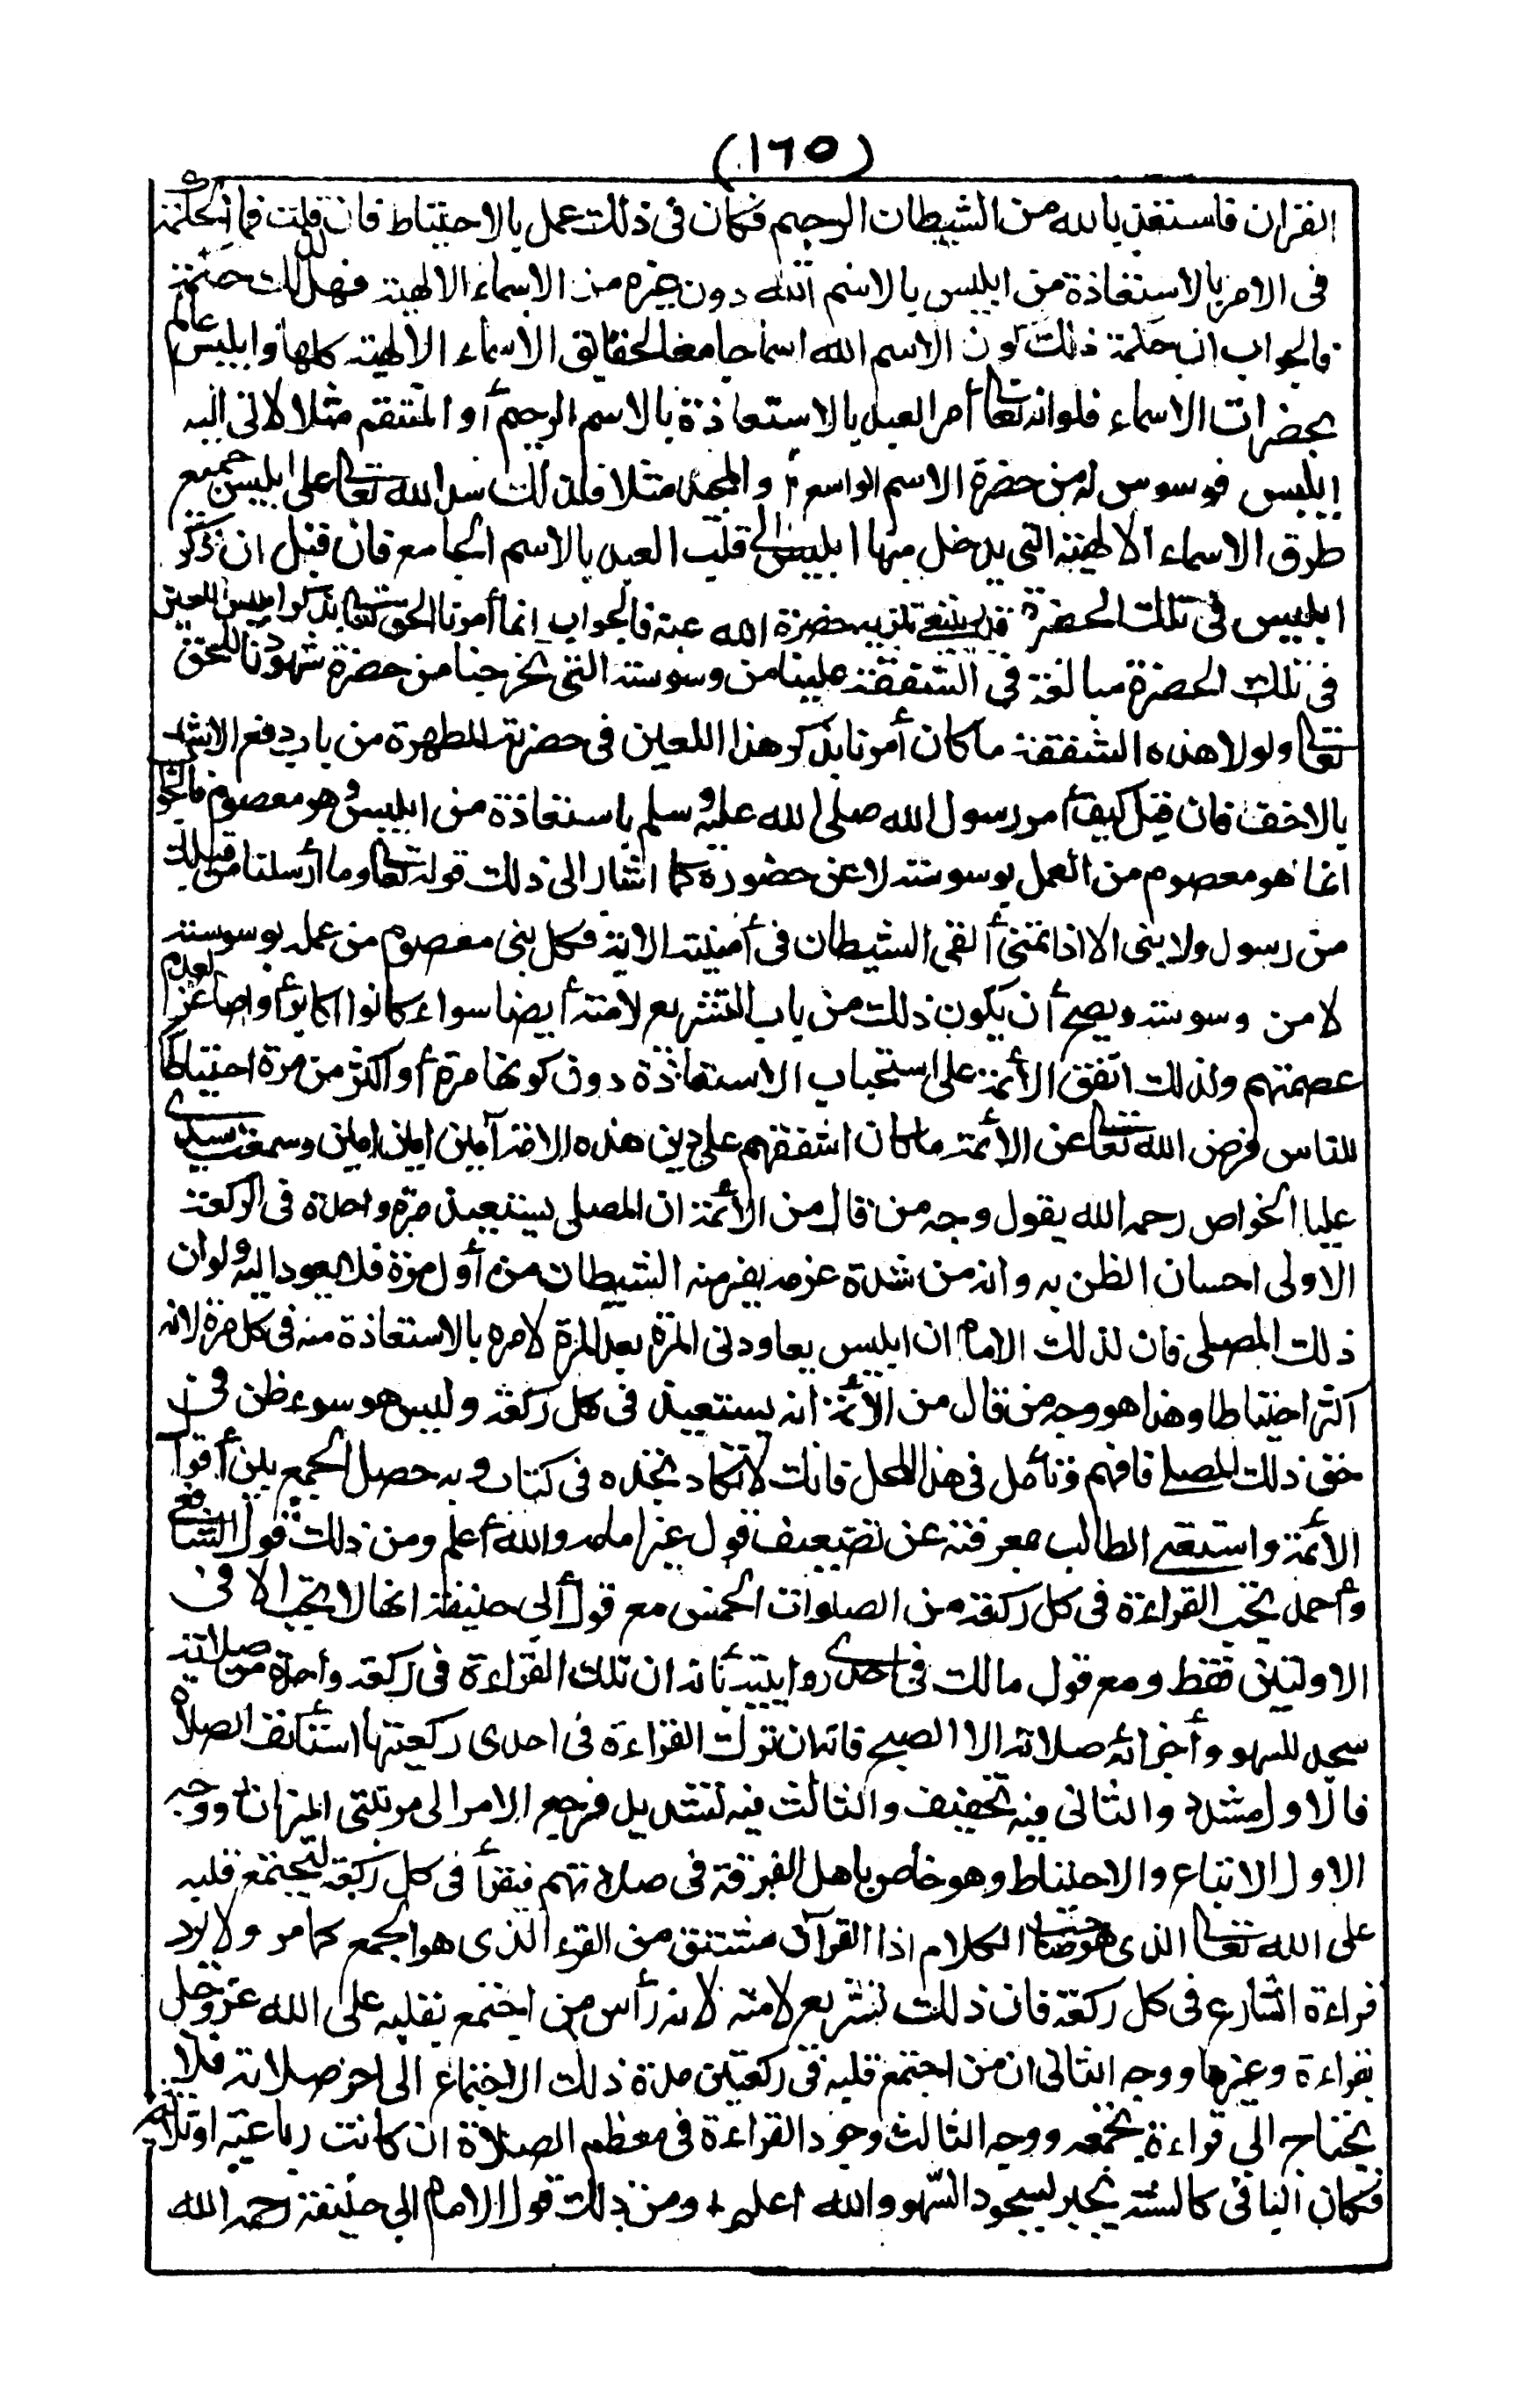 (١٦٥)
القران فاستعذ بالله من الشيطان الرجيم فكان فى ذلك عمل بالاحتياط فان قلت فما الحكمة
فى الامر بالاستعاذة من ابليس بالاسم الله دون غيره من الاسماء الالهية فهل لذلك حكمة
فالجواب ان حكمة ذلك كون الاسم الله اسما جامعا لحقائق الاسماء الالهية كلها وابليس عالم
بحضرات الاسماء فلو انه تعالى أمر العبد بالاستعاذة بالاسم الرحيم أو المنتقم مثلا لاتى اليه
ابليس فوسوس له من حضرة الاسم الواسع أو الممد مثلا فلذلك سد الله تعالى على ابليس جميع
طرق الاسماء الالهية التى يدخل منها ابليس الى قلب العبد بالاسم الجامع فان قيل ان ذكر
ابليس فى تلك الحضرة قد ينبغى تنزيه حضرة الله عنه فالجواب انما أمرنا الحق تعالى بذكر ابليس اللعين
فى تلك الحضرة مبالغة فى الشفقة علينا من وسوسته التى تخرجنا من حضرة شهودنا للحق
تعالى ولولا هذه الشفقة ما كان أمرنا بذكر هذا اللعين فى حضرته المطهرة من باب دفع الاشد
بالاخف فان قيل كيف أمر رسول الله صلى الله عليه وسلم باستعاذة من ابليس وهو معصوم فالجواب
انما هو معصوم من العمل بوسوسته لا عن حضوره كما اشار الى ذلك قوله تعالى وما أرسلنا من قبلك
من رسول ولا نبى الا اذا تمنى ألقى الشيطان فى أمنيته الاية فكل نبى معصوم من عمله بوسوسته
لا من وسوسته ويصح أن يكون ذلك من باب التشريع لامته أيضا سواء كانوا اكابرا أو اصاغرا لعدم
عصمتهم ولذلك اتفق الأئمة على استحباب الاستعاذة دون كونها مرة أو اكثر من مرة احتياطا
للناس فرضى الله تعالى عن الأئمة ما كان اشفقهم على دين هذه الامة آمين امين امين وسمعت سيدى
عليا الخواص رحمه الله يقول وجه من قال من الأئمة ان المصلى يستعيذ مرة واحدة فى الركعة
الاولى احسان الظن به وانه من شدة عزمه يفر منه الشيطان من أول مرة فلا يعود اليه ولو ان
ذلك المصلى قال لذلك الامام ان ابليس يعاودنى المرة بعد المرة لامره بالاستعاذة منه فى كل مرة لانه
اكثر احتياطا وهذا هو وجه من قال من الأئمة انه يستعيذ فى كل ركعة وليس هو سوء ظن فى
حق ذلك المصلى فافهم وتأمل فى هذا المحل فانك لا تكاد تجده فى كتاب وبه حصل الجمع بين أقوال
الأئمة واستغنى الطالب بمعرفته عن تضعيف قول غير امامه والله أعلم ومن ذلك قول الشافعى
وأحمد تجب القراءة فى كل ركعة من الصلوات الخمس مع قول أبى حنيفة انها لا تجب الا فى
الاوليين فقط ومع قول مالك فى احدى روايتيه أنه ان تلك القراءة فى ركعة واحدة من صلاته
سجد للسهو وأجزأته صلاته الا الصبح فانه ان ترك القراءة فى احدى ركعتيها استأنف الصلاة
فالاول مشدد والثانى فيه تخفيف والثالث فيه تشديد فرجع الامر الى مرتبتى الميزان ووجه
الاول الاتباع والاحتياط وهو خاص باهل الفرقة فى صلاتهم فيقرأ فى كل ركعة ليجتمع قلبه
على الله تعالى الذى هو صاحب الكلام اذا القرآن مشتق من القرء الذى هو الجمع كما مر ولا يرد
قراءة الشارع فى كل ركعة فان ذلك تشريع لامته لانه رأس من اجتمع بقلبه على الله عز وجل
بقراءة وغيرها ووجه الثانى ان من اجتمع قلبه فى ركعتين مدة ذلك الاجتماع الى اخر صلاته فلا
يحتاج الى قراءة تجمعه ووجه الثالث وجود القراءة فى معظم الصلاة ان كانت رباعية او ثلاثية
فكان الباقى كالسنة يجبر بسجود السهو والله اعلم ومن ذلك قول الامام ابى حنيفة رحمه الله